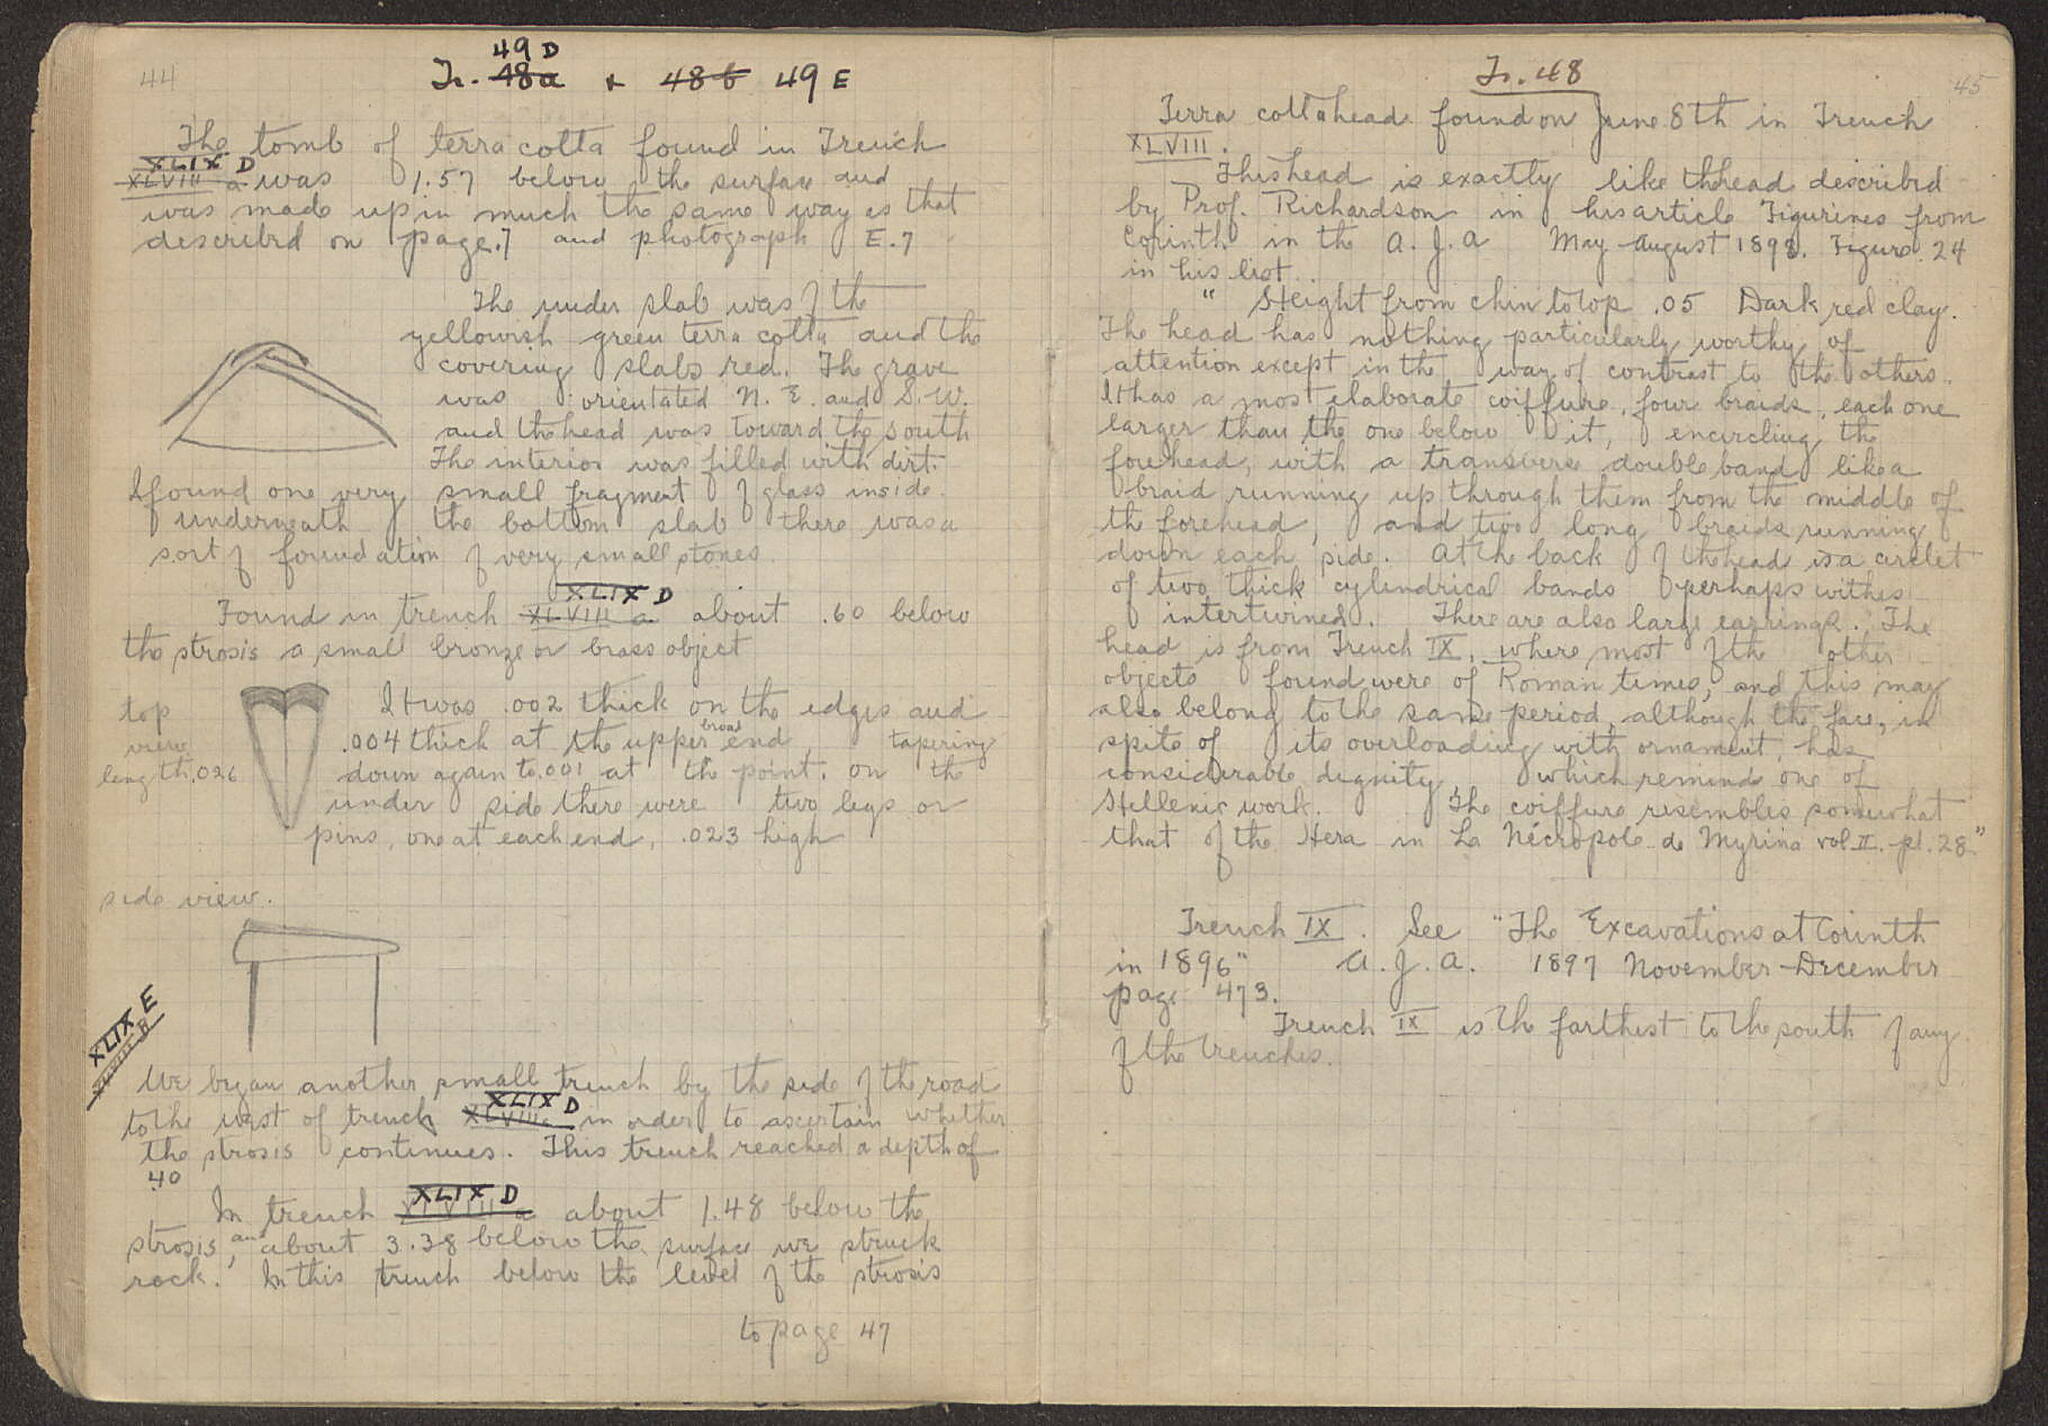 44
49 D
Tr. 48a & 48b 49 E
The tomb of terra cotta found in Trench
XLIX D
XLVIII a was 1.57 below the surface and
was made up in much the same way as that
described on page 7 and photograph E.7
The under slab was of the
yellowish green terra cotta and the
covering slabs red. The grave
was orientated N. E. and S. W.
and the head was toward the south
The interior was filled with dirt.
I found one very small fragment of glass inside.
underneath the bottom slab there was a
sort of foundation of very small stones.
XLIX D
Found in trench XLVIII a about .60 below
the strosis a small bronze or brass object
top
view
length .026
It was .002 thick on the edges and
.004 thick at the upper broad end, tapering
down again to .001 at the point. On the
under side there were two legs or
pins, one at each end, .023 high
side view.
XLIX E
XLVIII B
We began another small trench by the side of the road
XLIX D
to the west of trench XLVIII a in order to ascertain whether
the strosis continues. This trench reached a depth of
.40
XLIX D
In trench XLVIII a about 1.48 below the
strosis, and about 3.38 below the surface we struck
rock. In this trench below the level of the strosis
to page 47
45
Tr. 48
Terra cotta head found on June 8th in Trench
XLVIII.
This head is exactly like the head described
by Prof. Richardson in his article Figurines from
Corinth in the A. J. A May-August 1898. Figure 24
in his list.
" Height from chin to top .05 Dark red clay.
The head has nothing particularly worthy of
attention except in the way of contrast to the others.
It has a most elaborate coiffure, four braids, each one
larger than the one below it, encircling the
forehead, with a transverse double band like a
braid running up through them from the middle of
the forehead, and two long braids running
down each side. At the back of the head is a circlet
of two thick cylindrical bands perhaps withes
intertwined. There are also large earrings. The
head is from Trench IX, where most of the other
objects found were of Roman times, and this may
also belong to the same period, although the face, in
spite of its overloading with ornament, has
considerable dignity which remind one of
Hellenic work. The coiffure resembles somewhat
that of the Hera in La Nécropole de Myrina vol II. pl. 28"
Trench IX. See "The Excavations at Corinth
in 1896" A. J. A. 1897 November-December
page 473.
Trench IX is the farthest to the south of any
of the trenches.